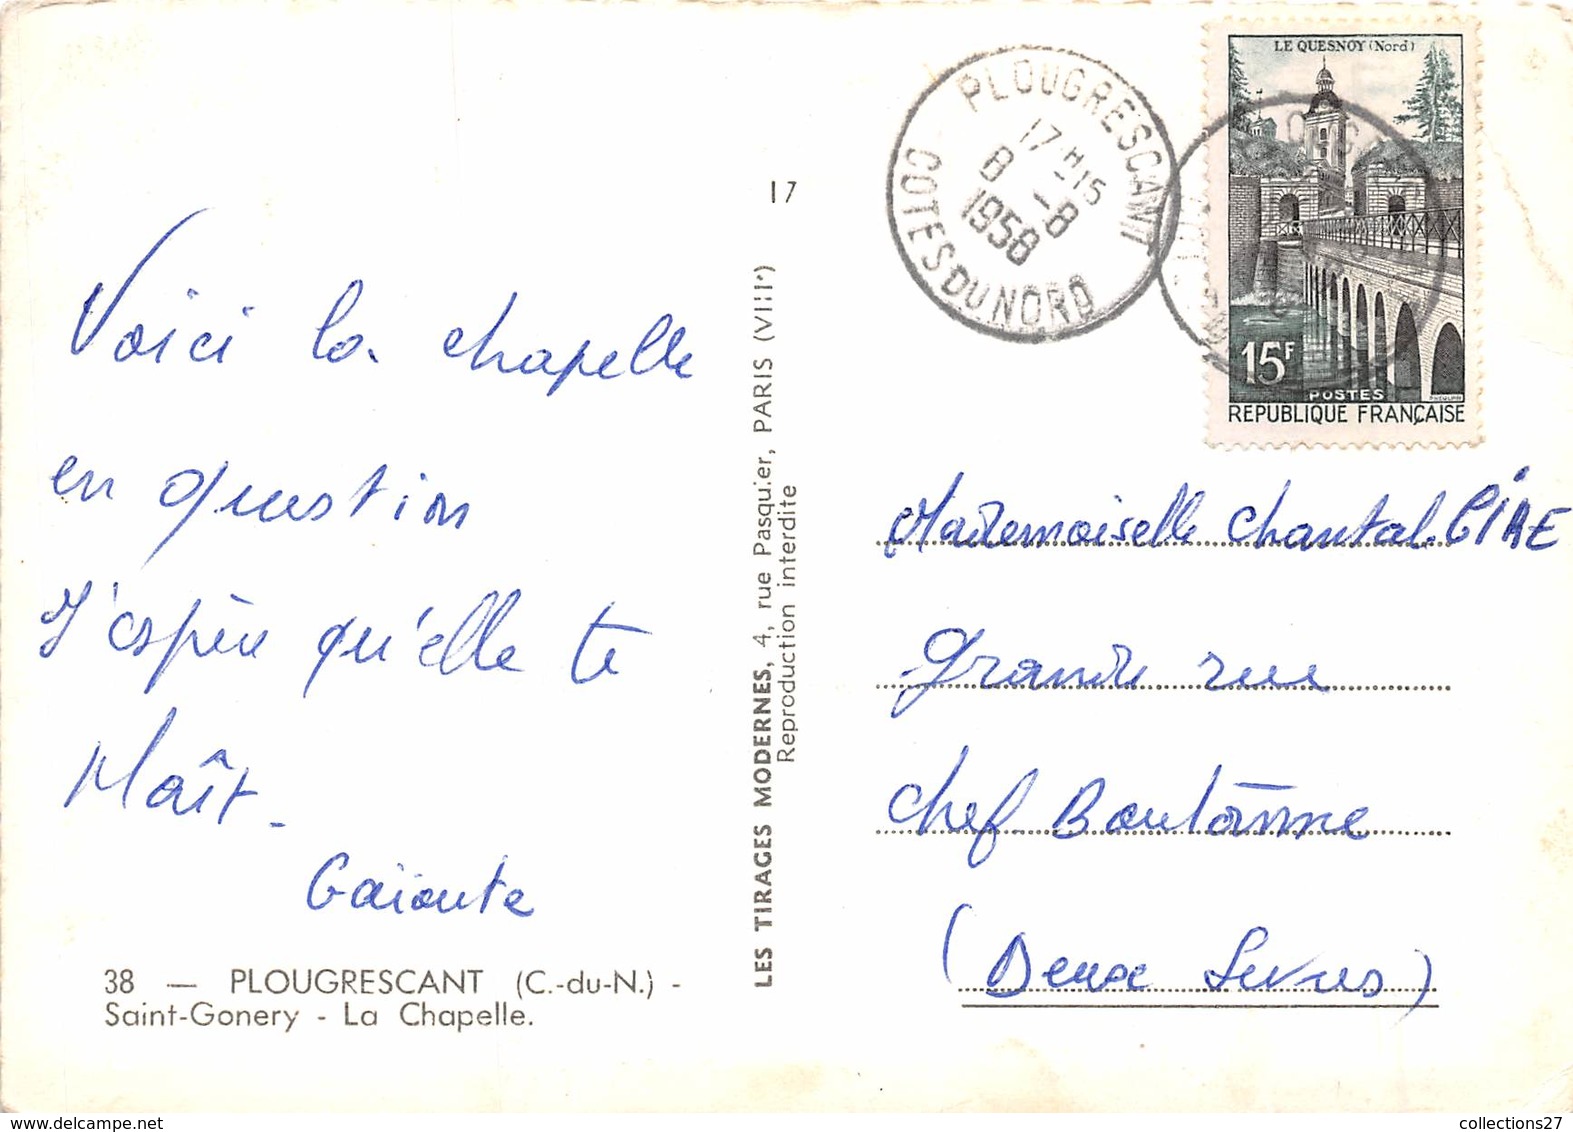 Voici la chapelle
en question
J'espère qu'elle te
plaît.
38 — PLOUGRESCANT (C.-du-N.) -
Saint-Gonery - La Chapelle.
17
LES TIRAGES MODERNES, 4, rue Pasquier, PARIS (VIIIe)
Reproduction interdite
PLOUGRESCANT
17H15
8 -8
1958
COTES DU NORD
LE QUESNOY (Nord)
15F
POSTES
REPUBLIQUE FRANÇAISE
Mademoiselle Chantal
Grande rue
Chef Boutonne
(Deux Sevres)
collections27